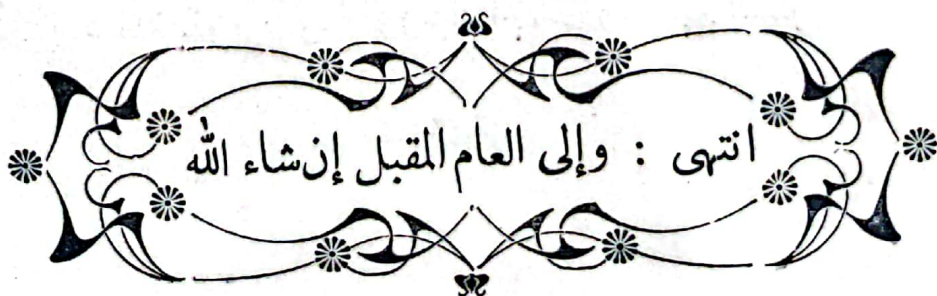 انتهى : وإلى العام المقبل إن شاء الله